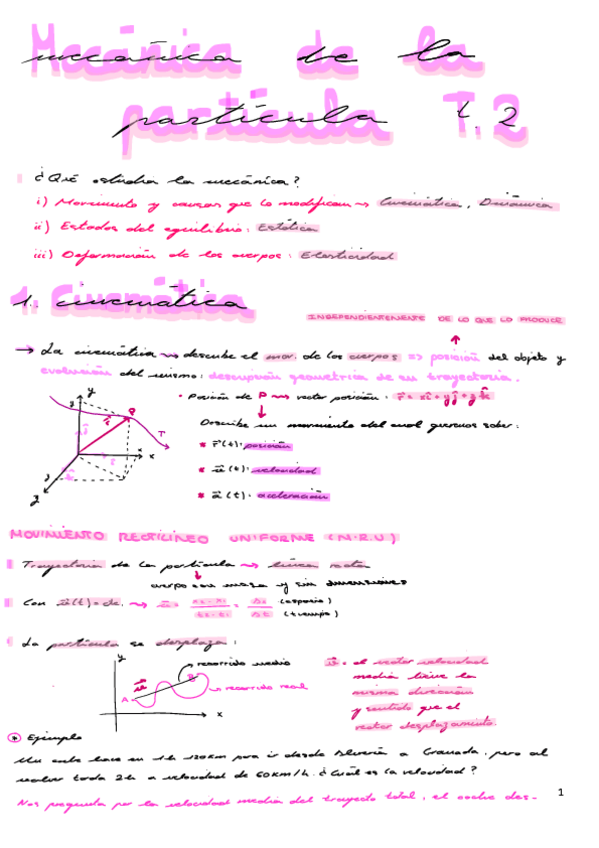 Mecánica de la
partícula T.2
¿Qué estudia la mecánica?
i) Movimiento y causas que lo modifican → Cinemática, Dinámica
ii) Estados del equilibrio: Estática
iii) Deformación de los cuerpos: Elasticidad
1. Cinemática
INDEPENDIENTEMENTE DE LO QUE LO PRODUCE
→ La cinemática → describe el mov. de los cuerpos => posición del objeto y
evolución del mismo: descripción geométrica de su trayectoria.
• Posición de P → vector posición: r⃗ = xî + yĵ + zk̂
Describe un movimiento del cual queremos saber:
r⃗(t): posición
v⃗(t): velocidad
a⃗(t): aceleración
y
P
r⃗
T
x
z
MOVIMIENTO RECTILÍNEO UNIFORME (M.R.U)
Trayectoria de la partícula → línea recta
cuerpo con masa y sin dimensiones
Con v⃗(t) = cte. → (espacio)
(tiempo)
La partícula se desplaza:
y
recorrido medio
A
B
recorrido real
x
el vector velocidad
media tiene la
misma dirección
y sentido que el
vector desplazamiento.
Ejemplo
Un coche hace en 1h 120km para ir desde Almería a Granada, pero al
volver tarda 2h a velocidad de 60km/h. ¿Cuál es la velocidad?
Nos pregunta por la velocidad media del trayecto total, el coche des-
1